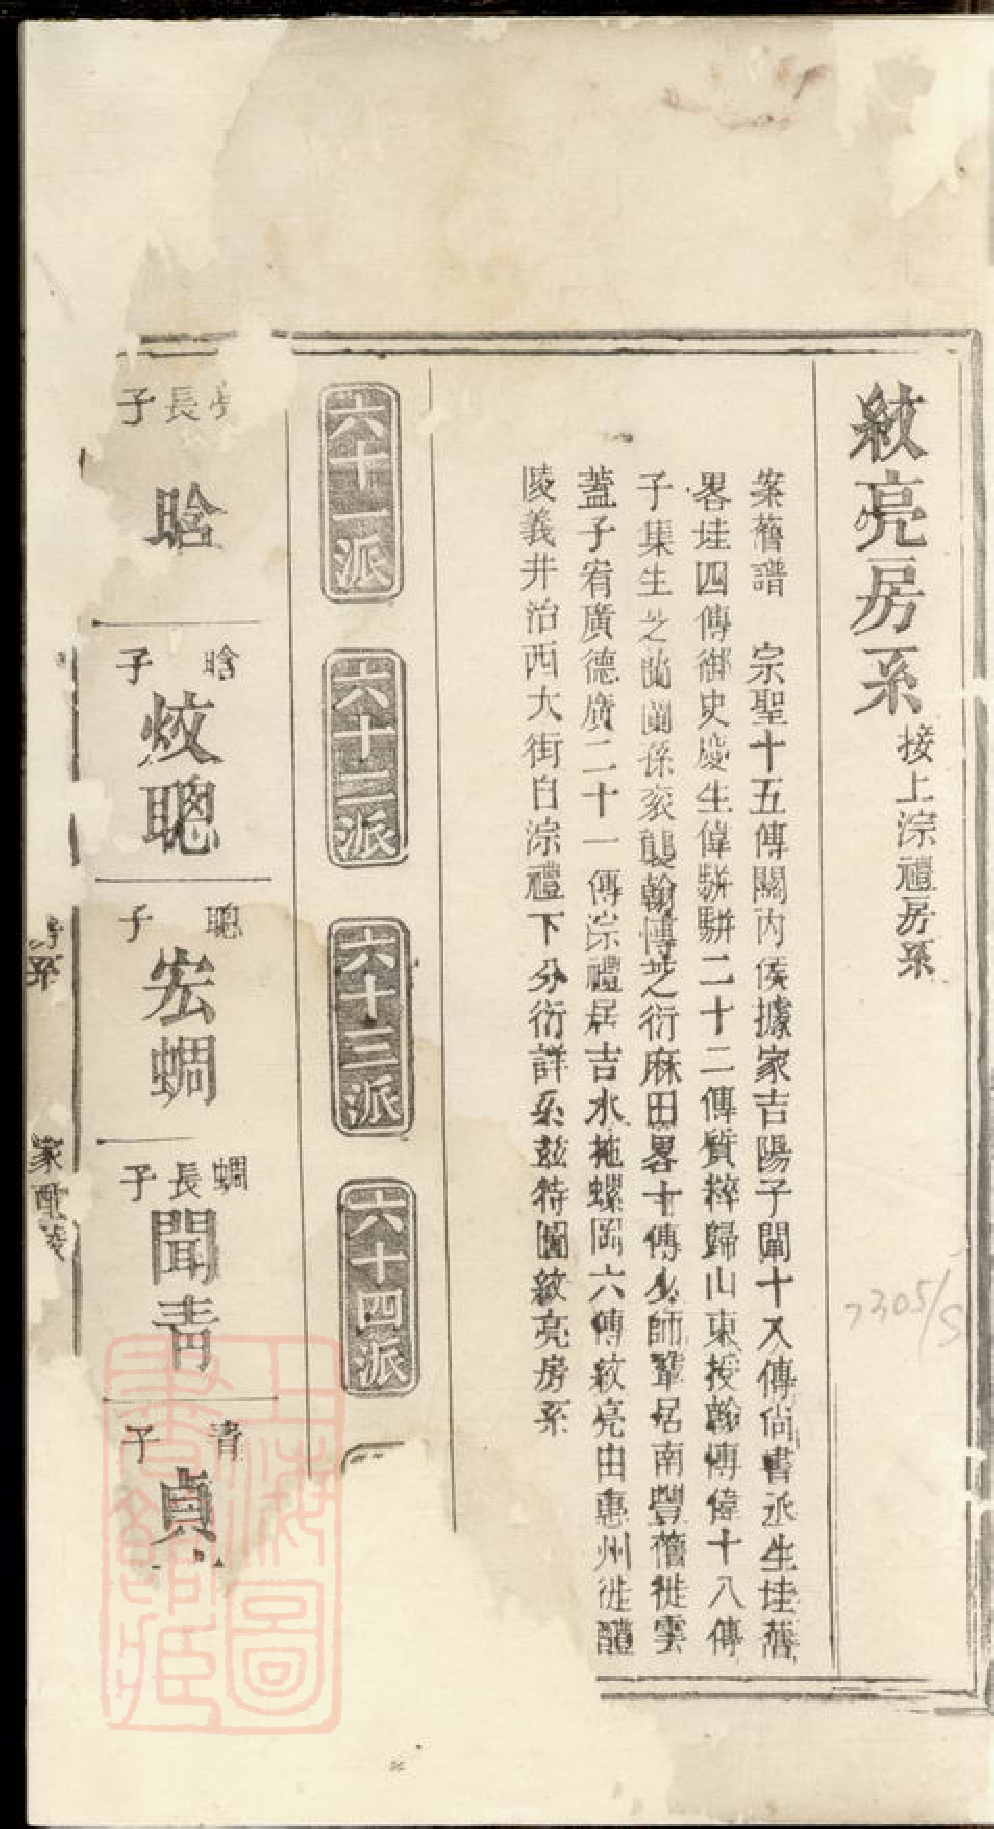 紋亮房系
接上淙禮房系
案舊譜 宗聖十五傳關內侯據家吉陽子闡十入傳尙書丞生珪舊
畧珪四傳御史慶生偉駢駢二十二傳質粹歸山東授翰博偉十八傳
子集生芝蘭蘭孫亥襲翰博芝衍麻田畧十傳少師鞏居南豐舊徙雲
蓋子宥廣德廣二十一傳淙禮居吉水拖螺岡六傳紋亮由惠州徙醴
陵義井治西大街自淙禮下分衍詳系茲特圖紋亮房系
六十一派
六十二派
六十三派
六十四派
長子
晗
晗子
炆聰
聰子
宏蜩
蜩長子
聞靑
靑子
貞
上海圖書館藏
家
7305/S